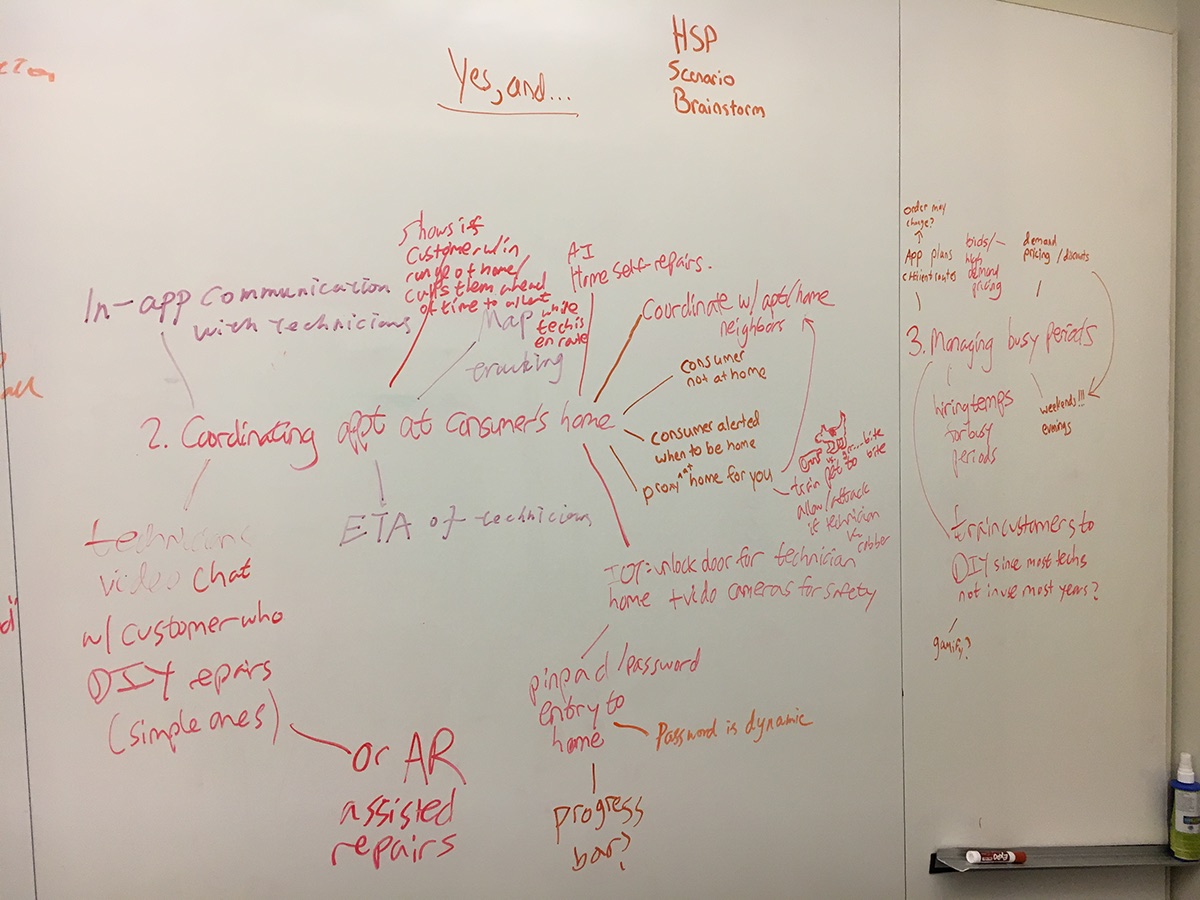 Yes, and...
HSP
Scenario
Brainstorm
In-app communication
with technicians
shows if
customer w/in
range of home/
calls them ahead
of time to alert
Map
tracking
while
tech is
en route
AI
Home self-repairs.
Coordinate w/ apt/home
neighbors
consumer
not at home
consumer alerted
when to be home
proxy at home for you
2. Coordinating appt at consumer's home
bite
train pet to bite
allow/attack
if technician
vs
robber
ETA of technicians
technicians
video chat
w/ customer who
DIY epairs
(simple ones)
or AR
assisted
repairs
IOT: unlock door for technician
home + vido cameras for safety
pinpad/password
entry to
home
Password is dynamic
progress
bar?
order may
change?
App plans
efficient routes
high
demand
pricing
demand
pricing/discounts
3. Managing busy periods
hiring temps
for busy
periods
weekends!!!
evenings
train customers to
DIY since most techs
not in use most years?
gamify?